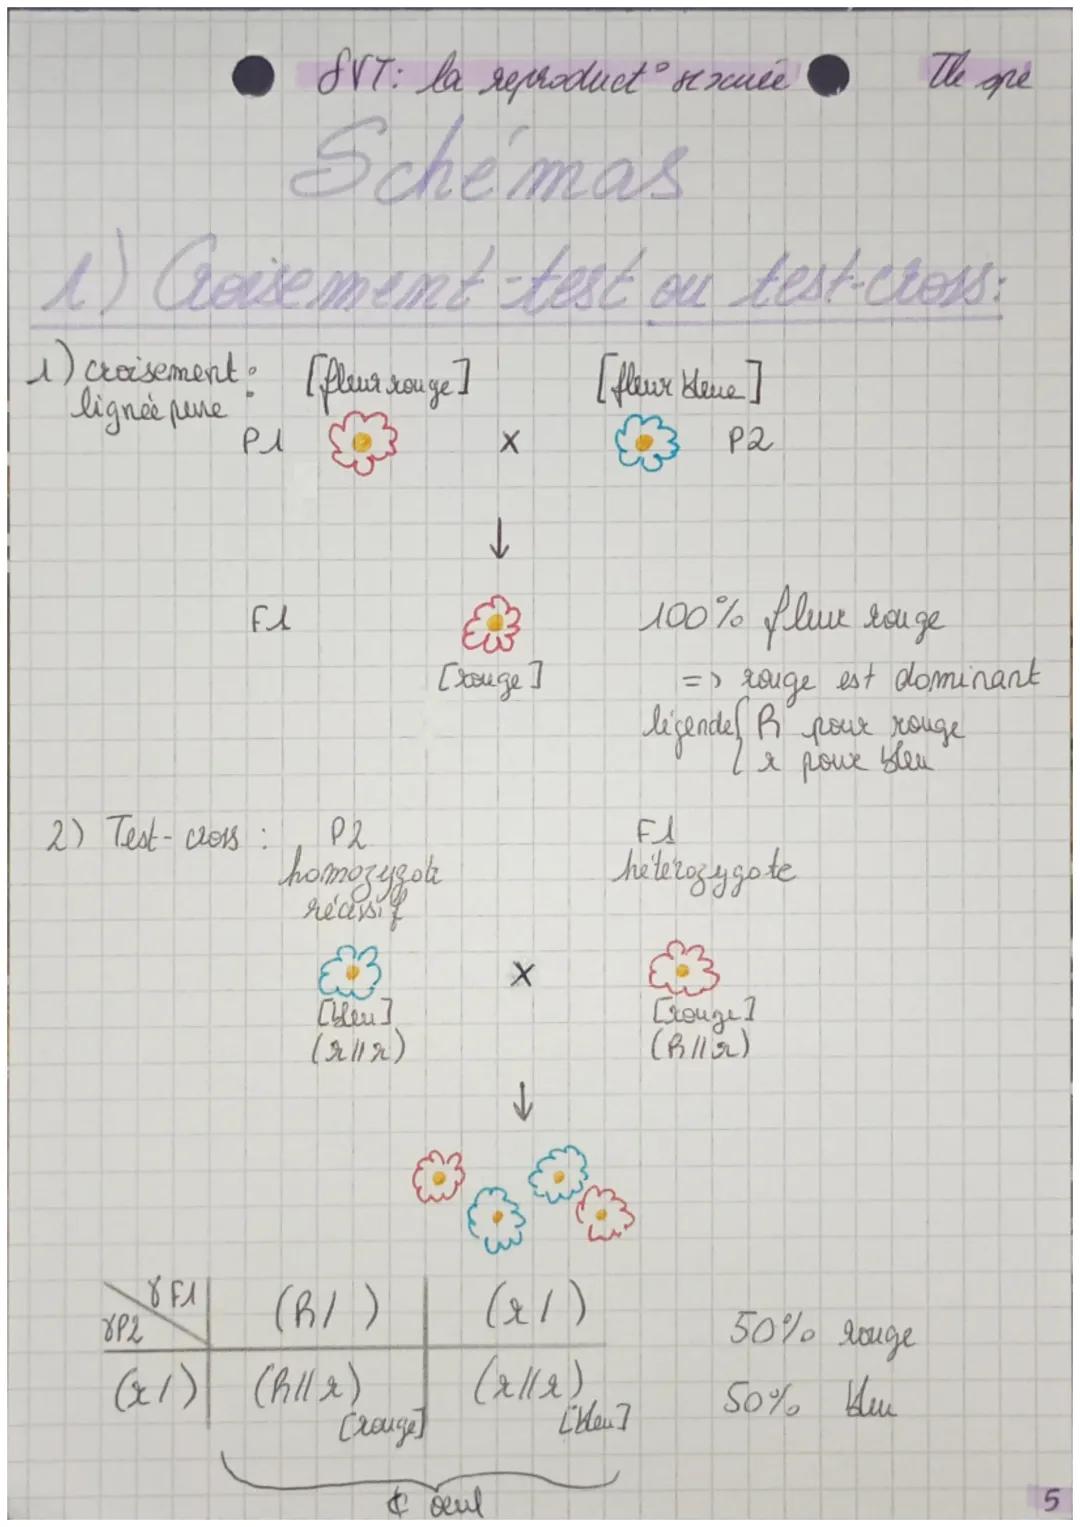 SVT: la reproduct° sexuée Tle spé
Schémas
1) Croisement-test ou test-cross:
1) croisement : [fleur rouge] [fleur bleue]
lignée pure
P1 x P2
↓
F1 100% fleur rouge
[rouge] => rouge est dominant
légende { R pour rouge
r pour bleu
2) Test-cross : P2 F1
homozygote hétérozygote
récessif
x
[bleu] [rouge]
(r//r) (R//r)
↓
γF1 (R/ ) (r/ )
γP2
50% rouge
(r/) (R//r) (r//r)
[rouge] [bleu] 50% bleu
¢ oeuf
5